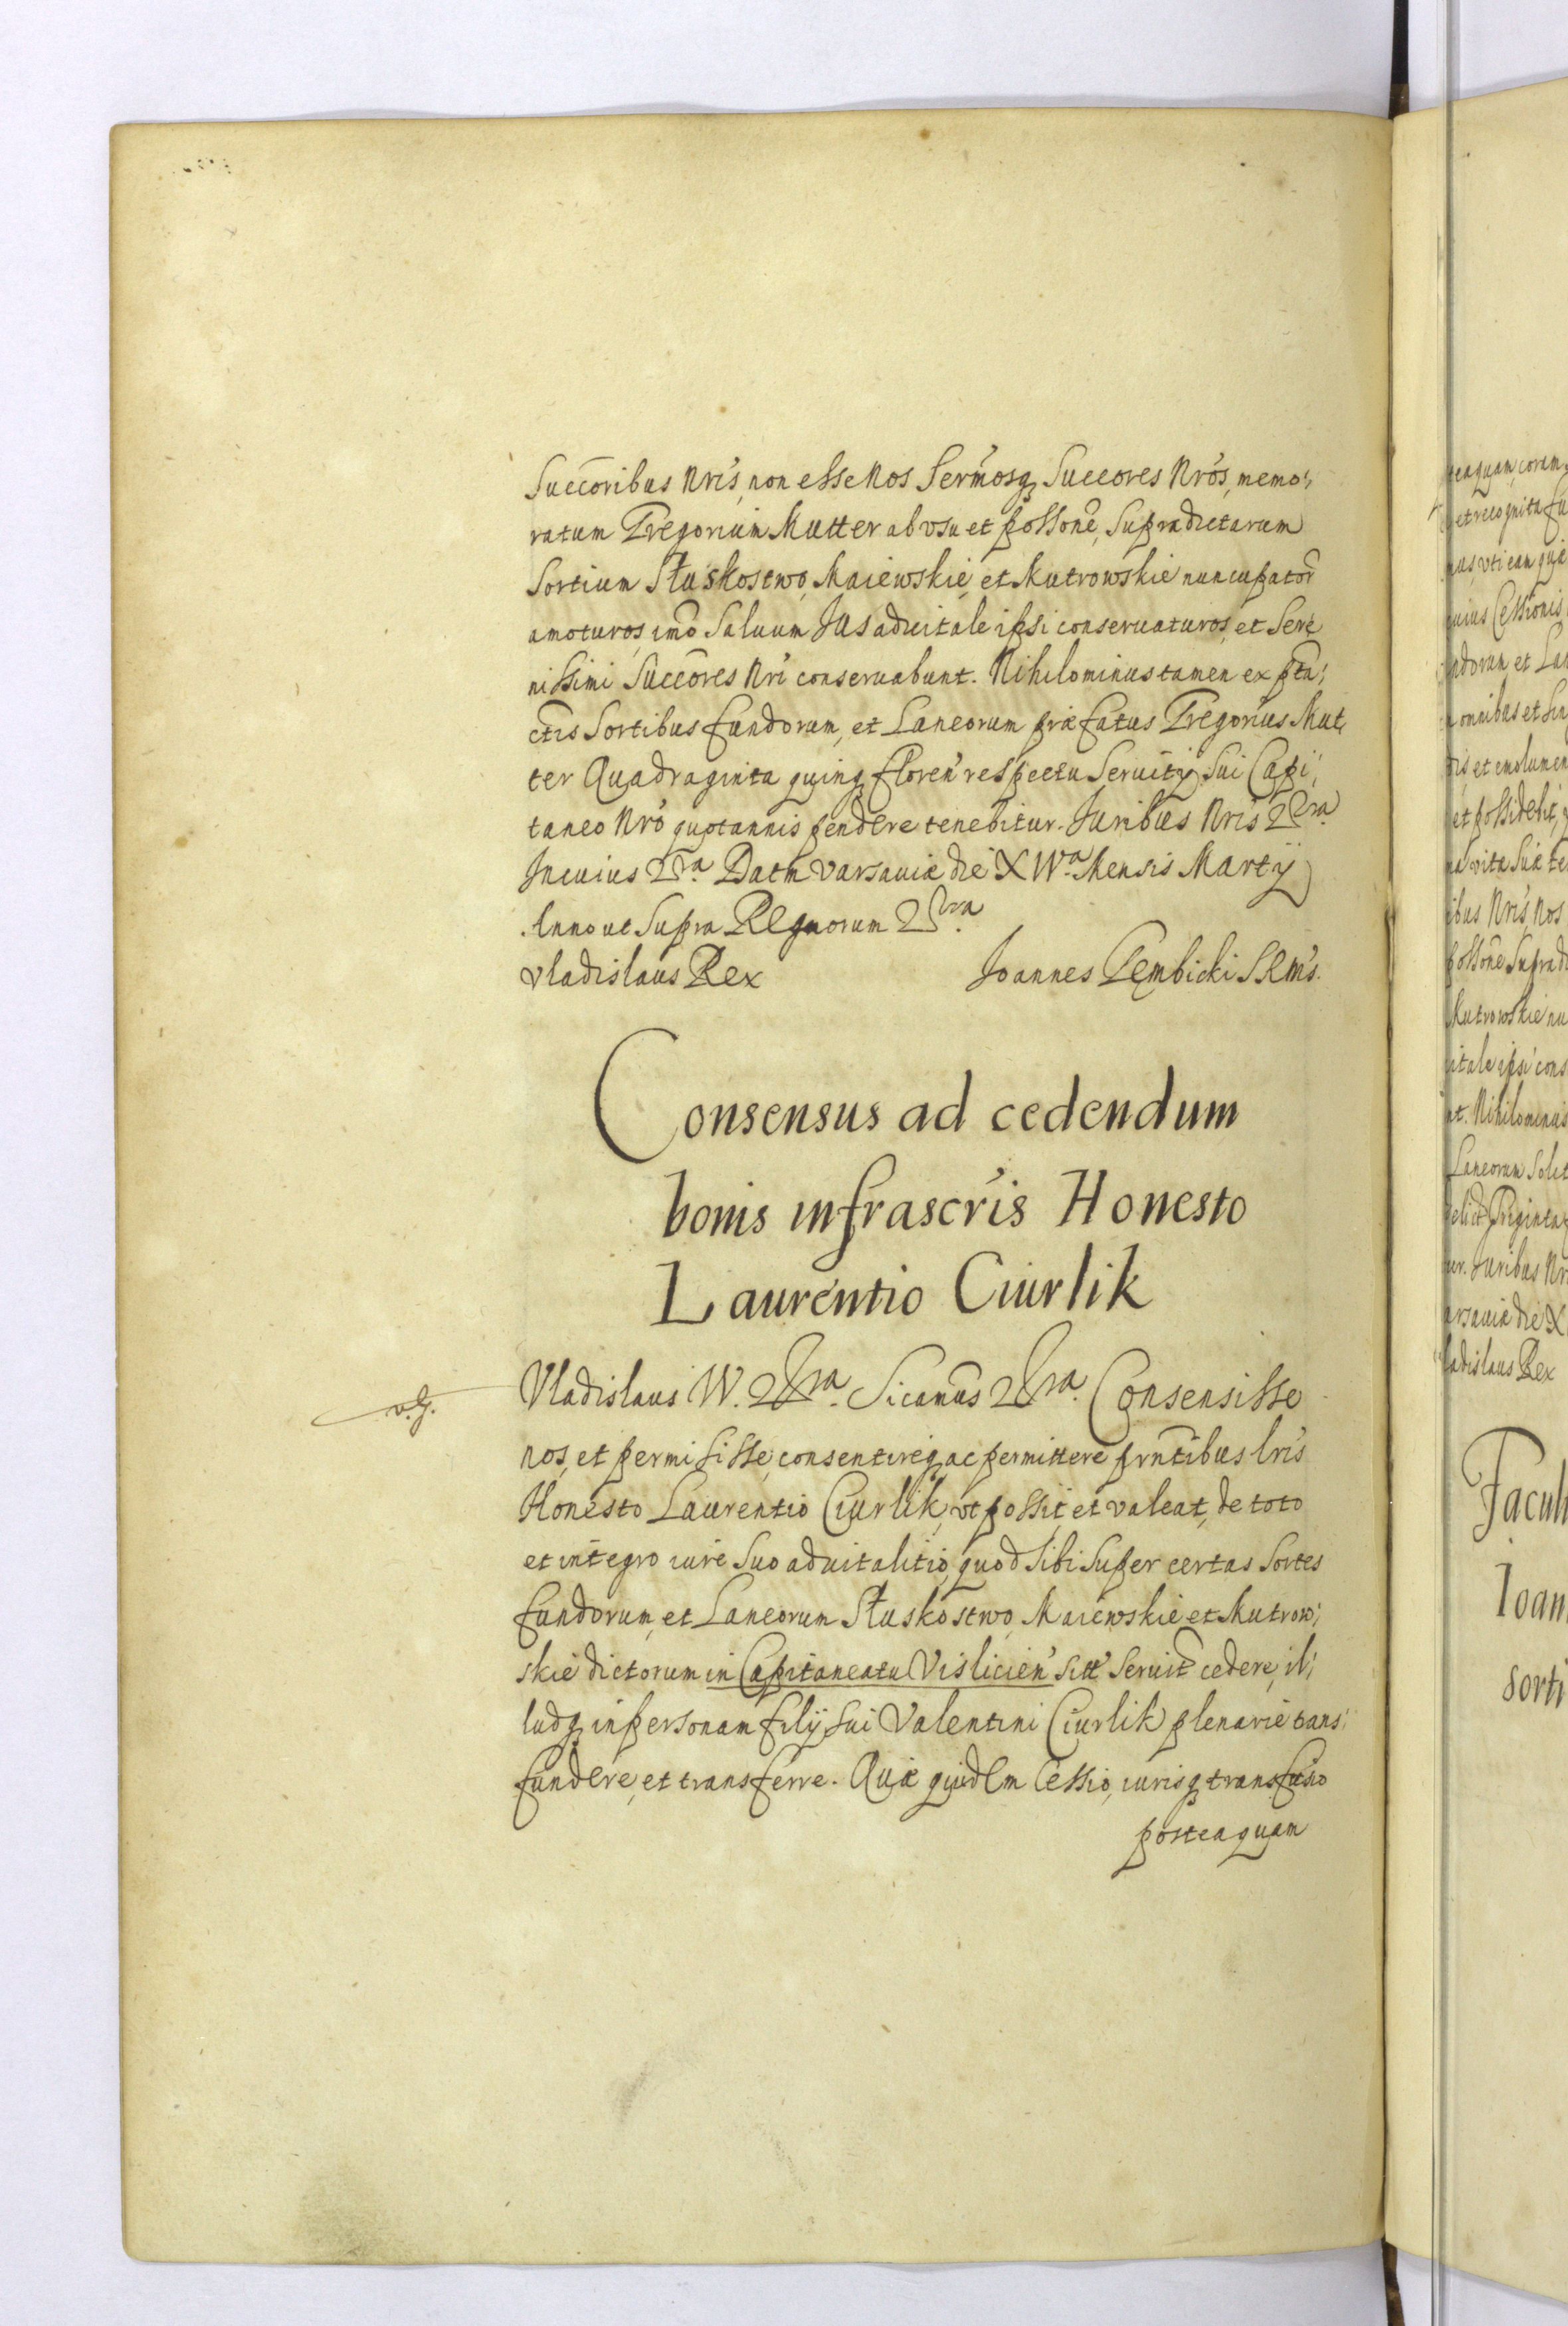 Succoribus Nris, non esse Nos Sermosq Succores Nros, memo,
ratum Gregorium Mutter ab vsu et possone, Supradictarum
Sortium Słuskostwo, Maiewskie, et Mutrowskie nuncupator
amoturos, imo Saluum Jus aduitale ipsi conseruaturos, et Sere
nissimi Succores Nri conseruabunt. Nihilominus tamen ex pta,
ctis Sortibus fundorum, et Laneorum præfatus Gregorius Mut,
ter Quadraginta quinq floren respectu Seruitÿ Sui Capi,
taneo Nro quotannis pendere tenebitur. Juribus Nris
In cuius Datm Varsauiæ die XWa Mensis Martÿ
Anno ut Supra Regnorum
Vladislaus Rex Joannes Gembicki SRMs.
Consensus ad cedendum
bonis infrascris Honesto
Laurentio Ciurlik
Vladislaus W. Sicamus Consensisse
nos, et permisisse, consentireq ac permittere prntibus lris
Honesto Laurentio Ciurlik, vt possit et valeat, de toto
et integro iure Suo aduitalitio, quod Sibi Super certas Sortes
fundorum, et Laneorum Słuskostwo, Maiewskie et Mutrow,
skie dictorum in Capitaneatu Vislicien sitt Seruit cedere, il,
ludq in personam filÿ Sui Valentini Ciurlik plenarie tans,
fundere, et transferre. Quæ quidem Cessio, iurisq transfusio
posteaquam
teaquam, coram
et recognita fu
nus vti eam quæ
uius Cessionis
ndorum et Lan
omnibus et Sin
is et emolumen
et possidebit,
vita Suæ te
ibus Nris, Nos
possone Supradi
Mutrowskie nu
itale ipsi cons
nt. Nihilominus
Laneorum Solet
Triginta
ur. Juribus Nr
arsauiæ die X
ladislaus Rex
Facult
Ioan
sorti